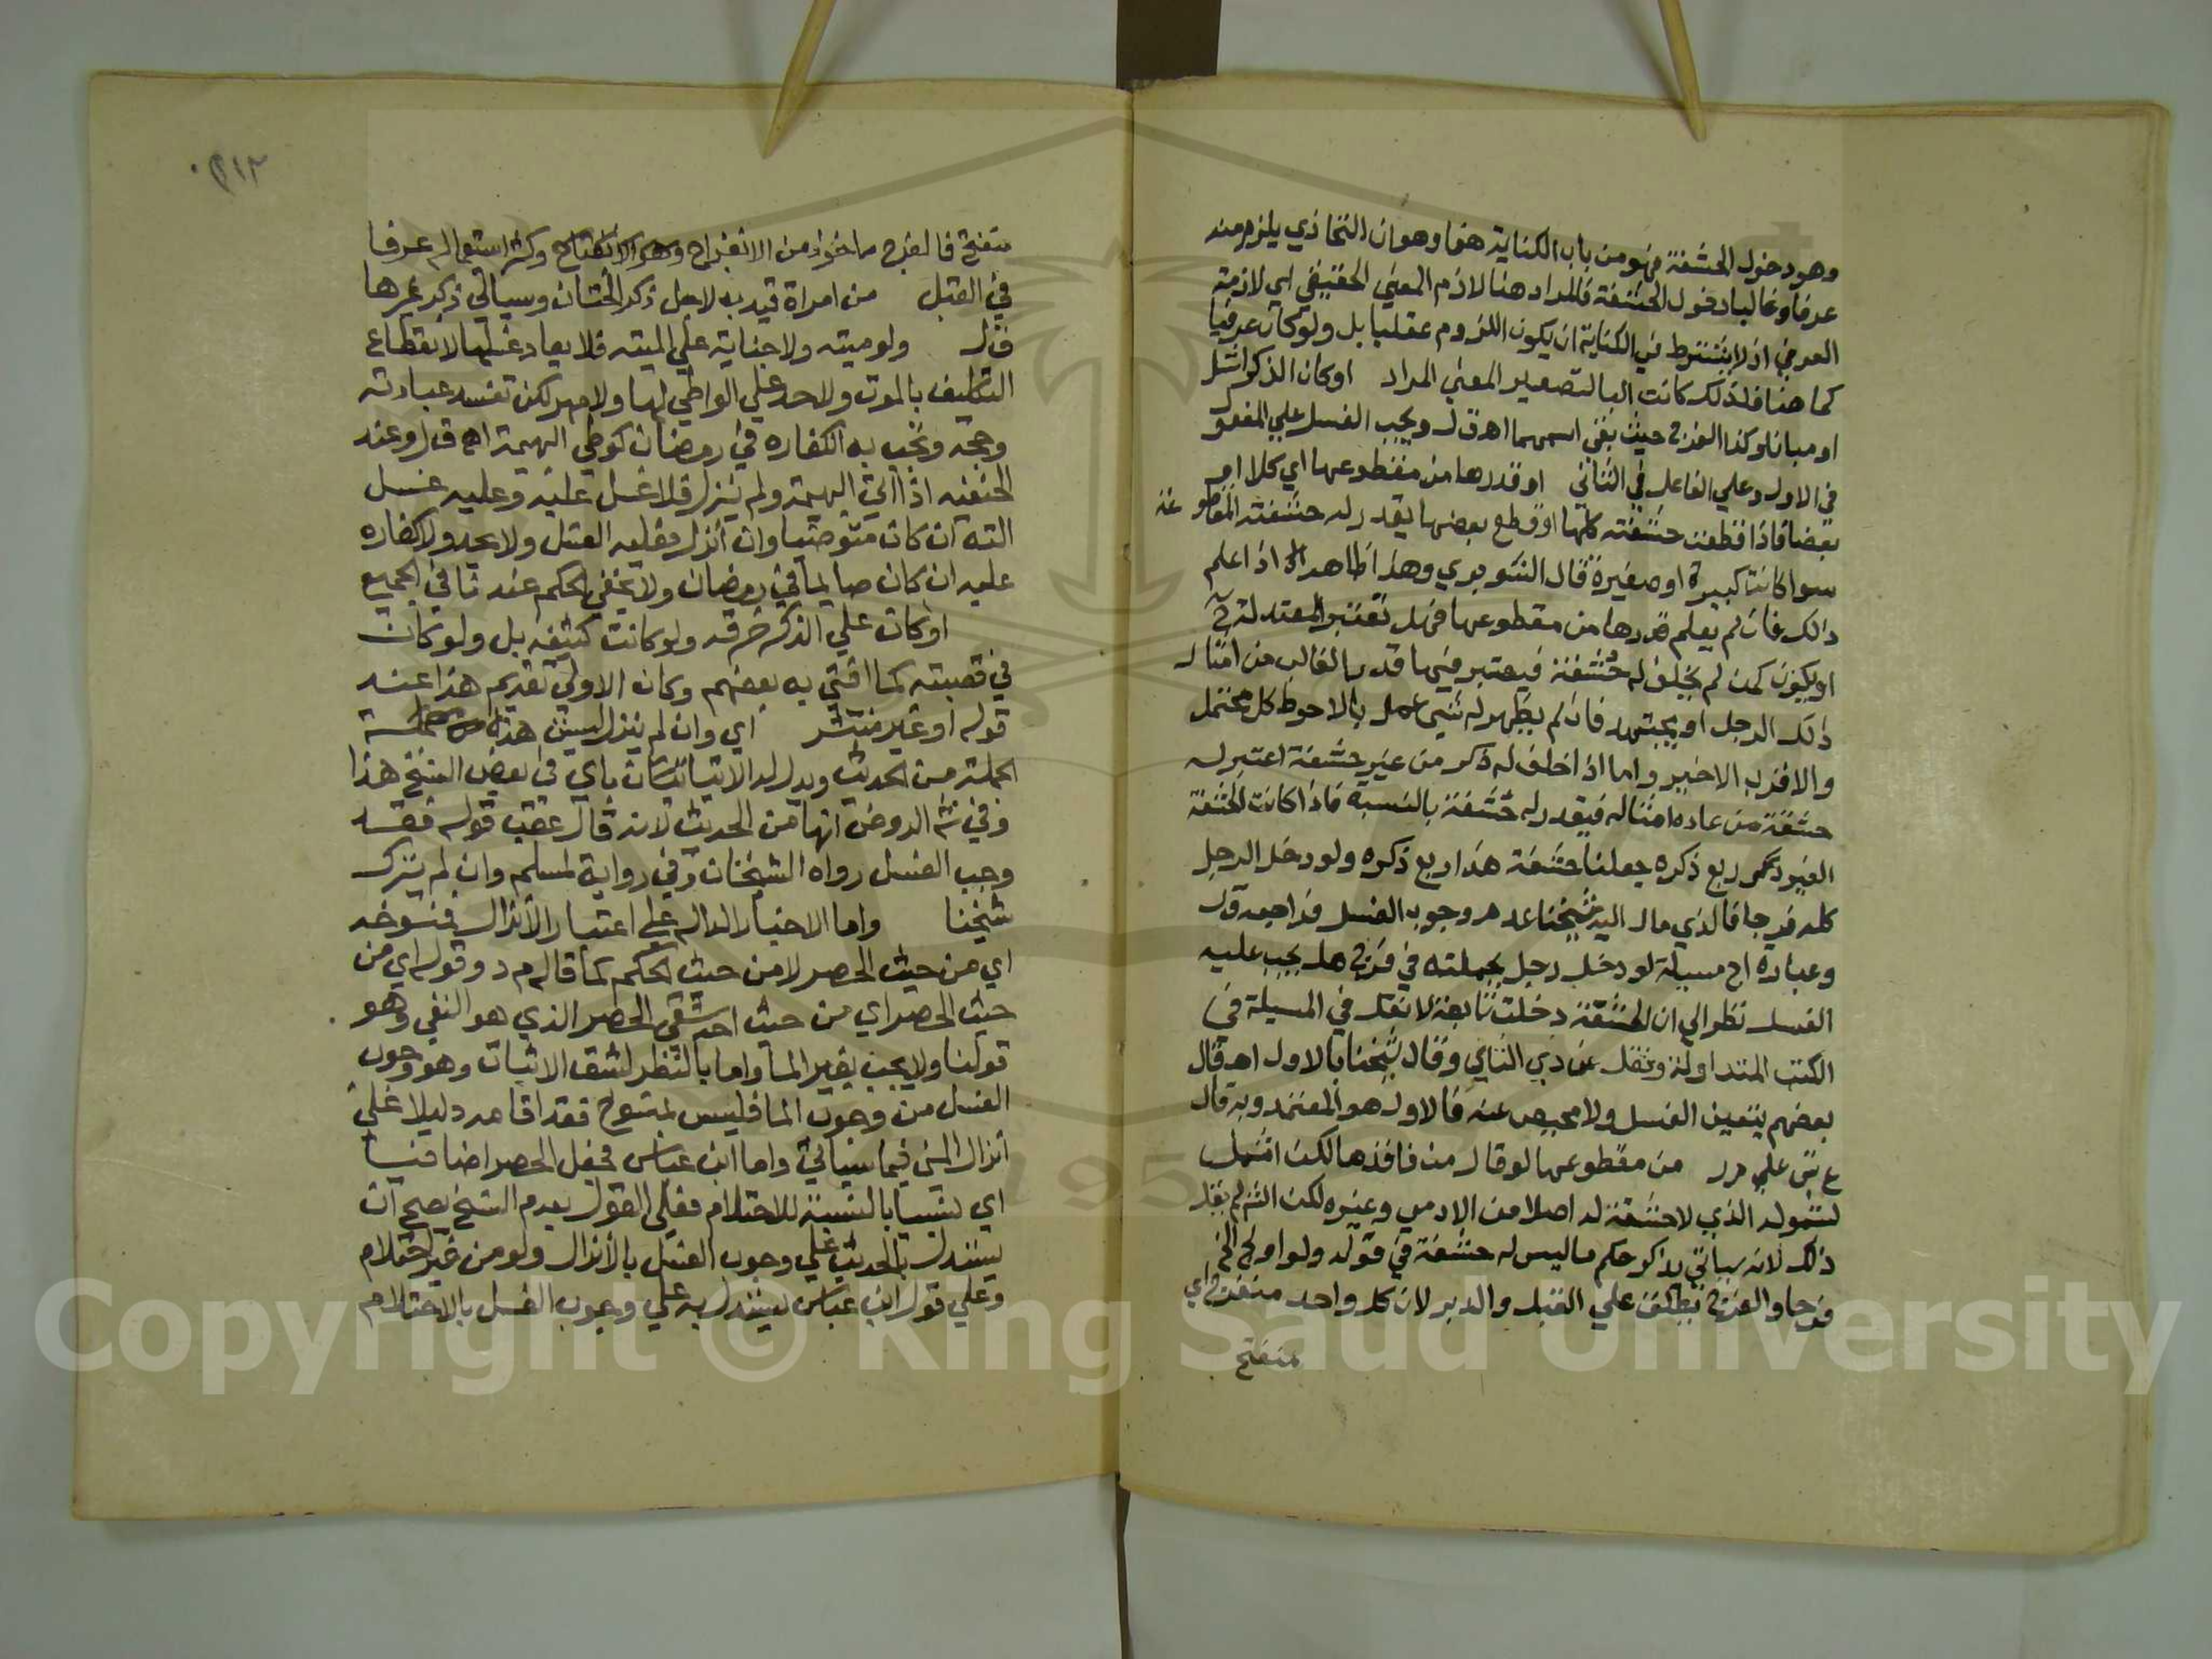 وهو دخول الحشفة فهو من باب الكناية هنا وهو ان التحاذي يلزم منه
عرفا وغالبا دخول الحشفة فالمراد هنا لازم المعني الحقيقي اي لازمة
العرفي اذ لا يشترط في الكناية ان يكون اللزوم عقليا بل ولو كان عرفيا
كما هنا فلذلك كانت البا لتصوير المعني المراد او كان الذكر اشل
او مبانا وكذا الفرج حيث بقي اسمهما اهـ ق ل ويجب الغسل علي المفعول
في الاول وعلي الفاعل في الثاني او قدرها من مقطوعها اي كلا او
بعضا فاذا قطعت حشفته كلها او قطع بعضها يقدر له حشفته المقطوعة
سوا كانت كبيرة او صغيرة قال الشوبري وهذا ظاهر اذا علم
ذالك فان لم يعلم قدرها من مقطوعها فهل تعتبر المعتدلة
او يكون كمن لم يخلق له حشفة فيعتبر فيها قدر الغالب من امثال
ذلك الرجل او يجتهد فان لم يظهر له شي عمل بالاحوط كل محتمل
والاقرب الاخير واما اذا خلق له ذكر من غير حشفة اعتبر له
حشفة من عادة امثاله فيقدر له حشفة بالنسبة فاذا كانت الحشفة
ربع ذكره جعلنا حشفة هذا ربع ذكره ولو دخل الرجل
كله فرجا فالذي مال اليه شيخنا عدم وجوب الغسل فراجعه ق ل
وعبارة اج مسيلة لو دخل رجل بجملته في فرج هل يجب عليه
الغسل نظرا الي ان الحشفة دخلت تابعة لا نقل في المسيلة في
الكتب المتداولة ونقل عن ذي الثاني وقال شيخنا بالاول اهـ قال
بعضهم يتعين الغسل ولا محيص عنه فالاول هو المعتمد وبه قال
ع ش علي م ر من مقطوعها لو قال من فاقدها لكن اشمل
لشموله الذي لا حشفة له اصلا من الادمي وغيره لكن الش لم يقل
ذلك لانه سياتي يذكر حكم ما ليس له حشفة في قوله ولو اولج الخ
فرجا والفرج يطلق علي القبل والدبر لان كل واحد منفرج اي
منفتح
٢١٢
منفتح فالفرج ماخوذ من الانفراج وهو الانفتاح وكثر استعماله عرفا
في القبل من امراة قيد به لاجل ذكر الختان وسياتي ذكر غيرها
ق ل ولو ميته ولا جناية علي الميته فلا يعاد غسلها لانقطاع
التكليف بالموت ولا حد علي الواطي لها ولا مهر لكن تفسد عبادته
وحجه وتجب به الكفاره في رمضان كوطي البهيمة اهـ ق ل وعند
الحنفيه اذا اتي البهيمة ولم ينزل فلا غسل عليه وعليه غسل
الته ان كان متوضيا وان انزل فعليه الغسل ولا يحد ولا كفاره
عليه ان كان صايما في رمضان ولا يخفي الحكم عندنا في الجميع
او كان علي الذكر خرقه ولو كانت كثيفه بل ولو كان
في قصبته كما افتي به بعضهم وكان الاولي تقديم هذا عند
قوله او غير منتشر اي وان لم ينزل ليس هذه من
الجملة من الحديث ويدل له الاتيان باي في بعض النسخ هذا
وفي ش الروض انها من الحديث لانه قال عقب قوله فقد
وجب الغسل رواه الشيخان وفي رواية لمسلم وان لم ينزل
شيخنا واما الاخبار الدالة علي اعتبار الانزال فمنسوخه
اي من حيث الحصر لا من حيث الحكم كما قاله م د وقوله اي من
حيث الحصر اي من حيث احد شقي الحصر الذي هو النفي وهو
قولنا ولا يجب بغير الما واما بالنظر لشق الاثبات وهو وجوب
الغسل من وجود الما فليس لمنسوخ فقد اقامه دليلا علي
انزال المني فيما سياتي واما ابن عباس فجعل الحصر اضافيا
اي نسبيا بالنسبة للاحتلام فعلي القول بعدم النسخ يصح ان
يستدل بالحديث علي وجوب الغسل بالانزال ولو من غير احتلام
وعلي قول ابن عباس يستدل به علي وجوب الغسل بالاحتلام
Copyright © King Saud University
195